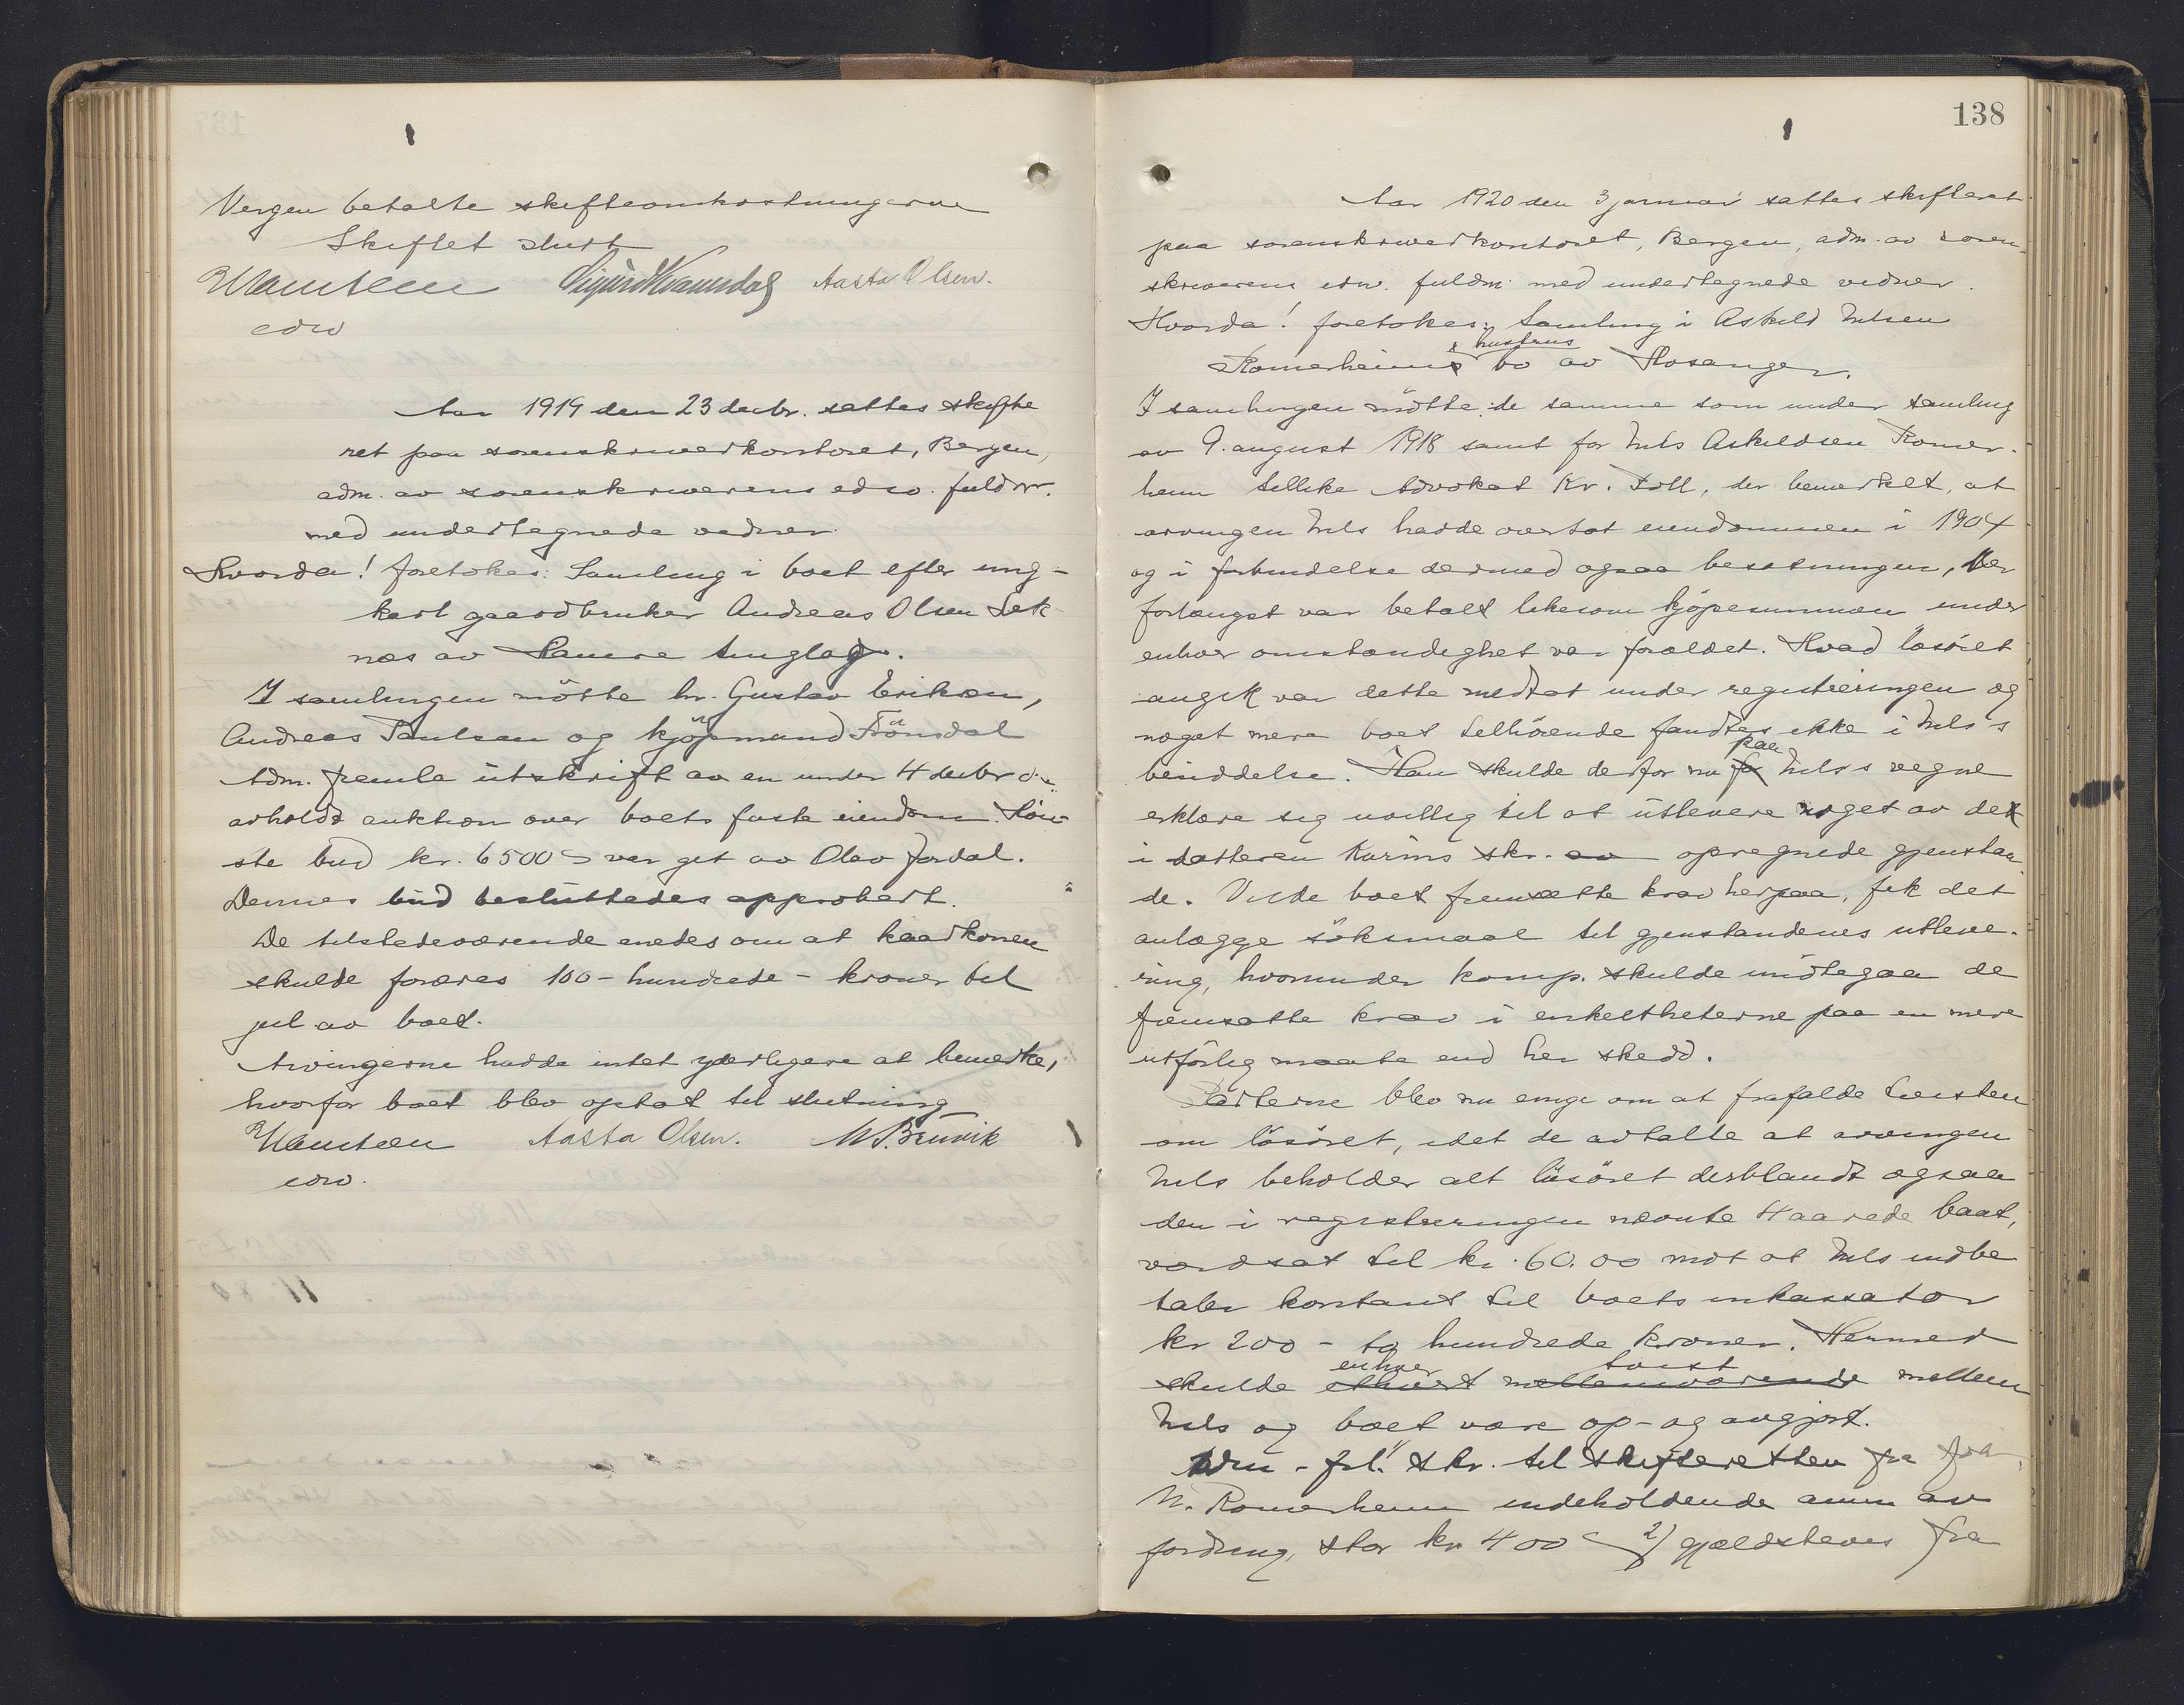 Vergen betalte skifteomkostningerne
Skiftet slutt
Sigurd Kvamsdal Aasta Olsen.
edsv
Aar 1919 den 23 decbr. sattes skifte
ret paa sorenskriverkontoret, Bergen,
adm. av sorenskriverens edsv. fuldm.
med undertegnede vidner.
Hvorda! foretokes: Samling i boet efter ung-
karl gaardbruker Andreas Olsen Sek-
næs av Hamre tinglag.
I samlingen mötte hr. Gustav Erikson,
Andreas Paulsen og kjöpmand Frömdal
Adm. fremla utskrift av en under 4 decbr d.a.
avholdt auktion over boets faste eiendom. Höie-
ste bud kr. 6500 var git av Olav Jordal.
Dennes bud besluttedes approbert.
De tilstedeværende enedes om at kaarkonen
skulde foræres 100 - hundrede - kroner til
jul av boet.
Arvingerne hadde intet yderligere at bemerke,
hvorfor boet blev optat til slutning
Aasta Olsen.
edsv.
138
Aar 1920 den 3 januar sattes skifteret
paa sorenskriverkontoret, Bergen, adm. av soren-
skriverens edsv. fuldm. med undertegnede vidner.
Hvorda! foretokes: Samling i Askild Nilsen
Romarheims & hustrus bo av Hosanger.
I samlingen mötte: de samme som under samling
av 9. august 1918 samt for Nils Askildsen Romar-
heim tillike Advokat Kr. Toll, der bemerket, at
arvingen Nils hadde overtat eiendommen i 1904
og i forbindelse dermed ogsaa besætningen, der
forlængst var betalt likesom kjöpesummen under
enhver omstændighet var forældet. Hvad lösöret
angik var dette medtat under registreringen og
noget mere boet tilhörende fandtes ikke i Nils's
besiddelse. Han skulde derfor nu paa Nils's vegne
erklære sig uvillig til at utlevere noget av det
i datteren Karins skr. av opregnede gjenstan
de. Vilde boet fremsætte krav herpaa, fik det
anlægge söksmaal til gjenstandenes utleve-
ring, hvorunder komp. skulde imötegaa de
fremsatte krav i enkeltheterne paa en mere
utförlig maate end her skedd.
Parterne blev nu enige om at frafalde tvisten
om lösöret, idet de avtalte at arvingen
Nils beholder alt lösöret deriblandt ogsaa
den i registreringen nævnte 4 aarede baat,
værdsat til kr. 60.00 mot at Nils indbe
taler kontant til boets inkassator
kr 200 - to hundrede kroner. Hermed
enhver tvist
skulde ethvert mellemværende mellem
Nils og boet være op- og avgjort.
Adm. frl. 1) skr. til skifteretten fra fra
N. Romarheim indeholdende anm av
fordring, stor kr 400 2) gjældsbevis fra